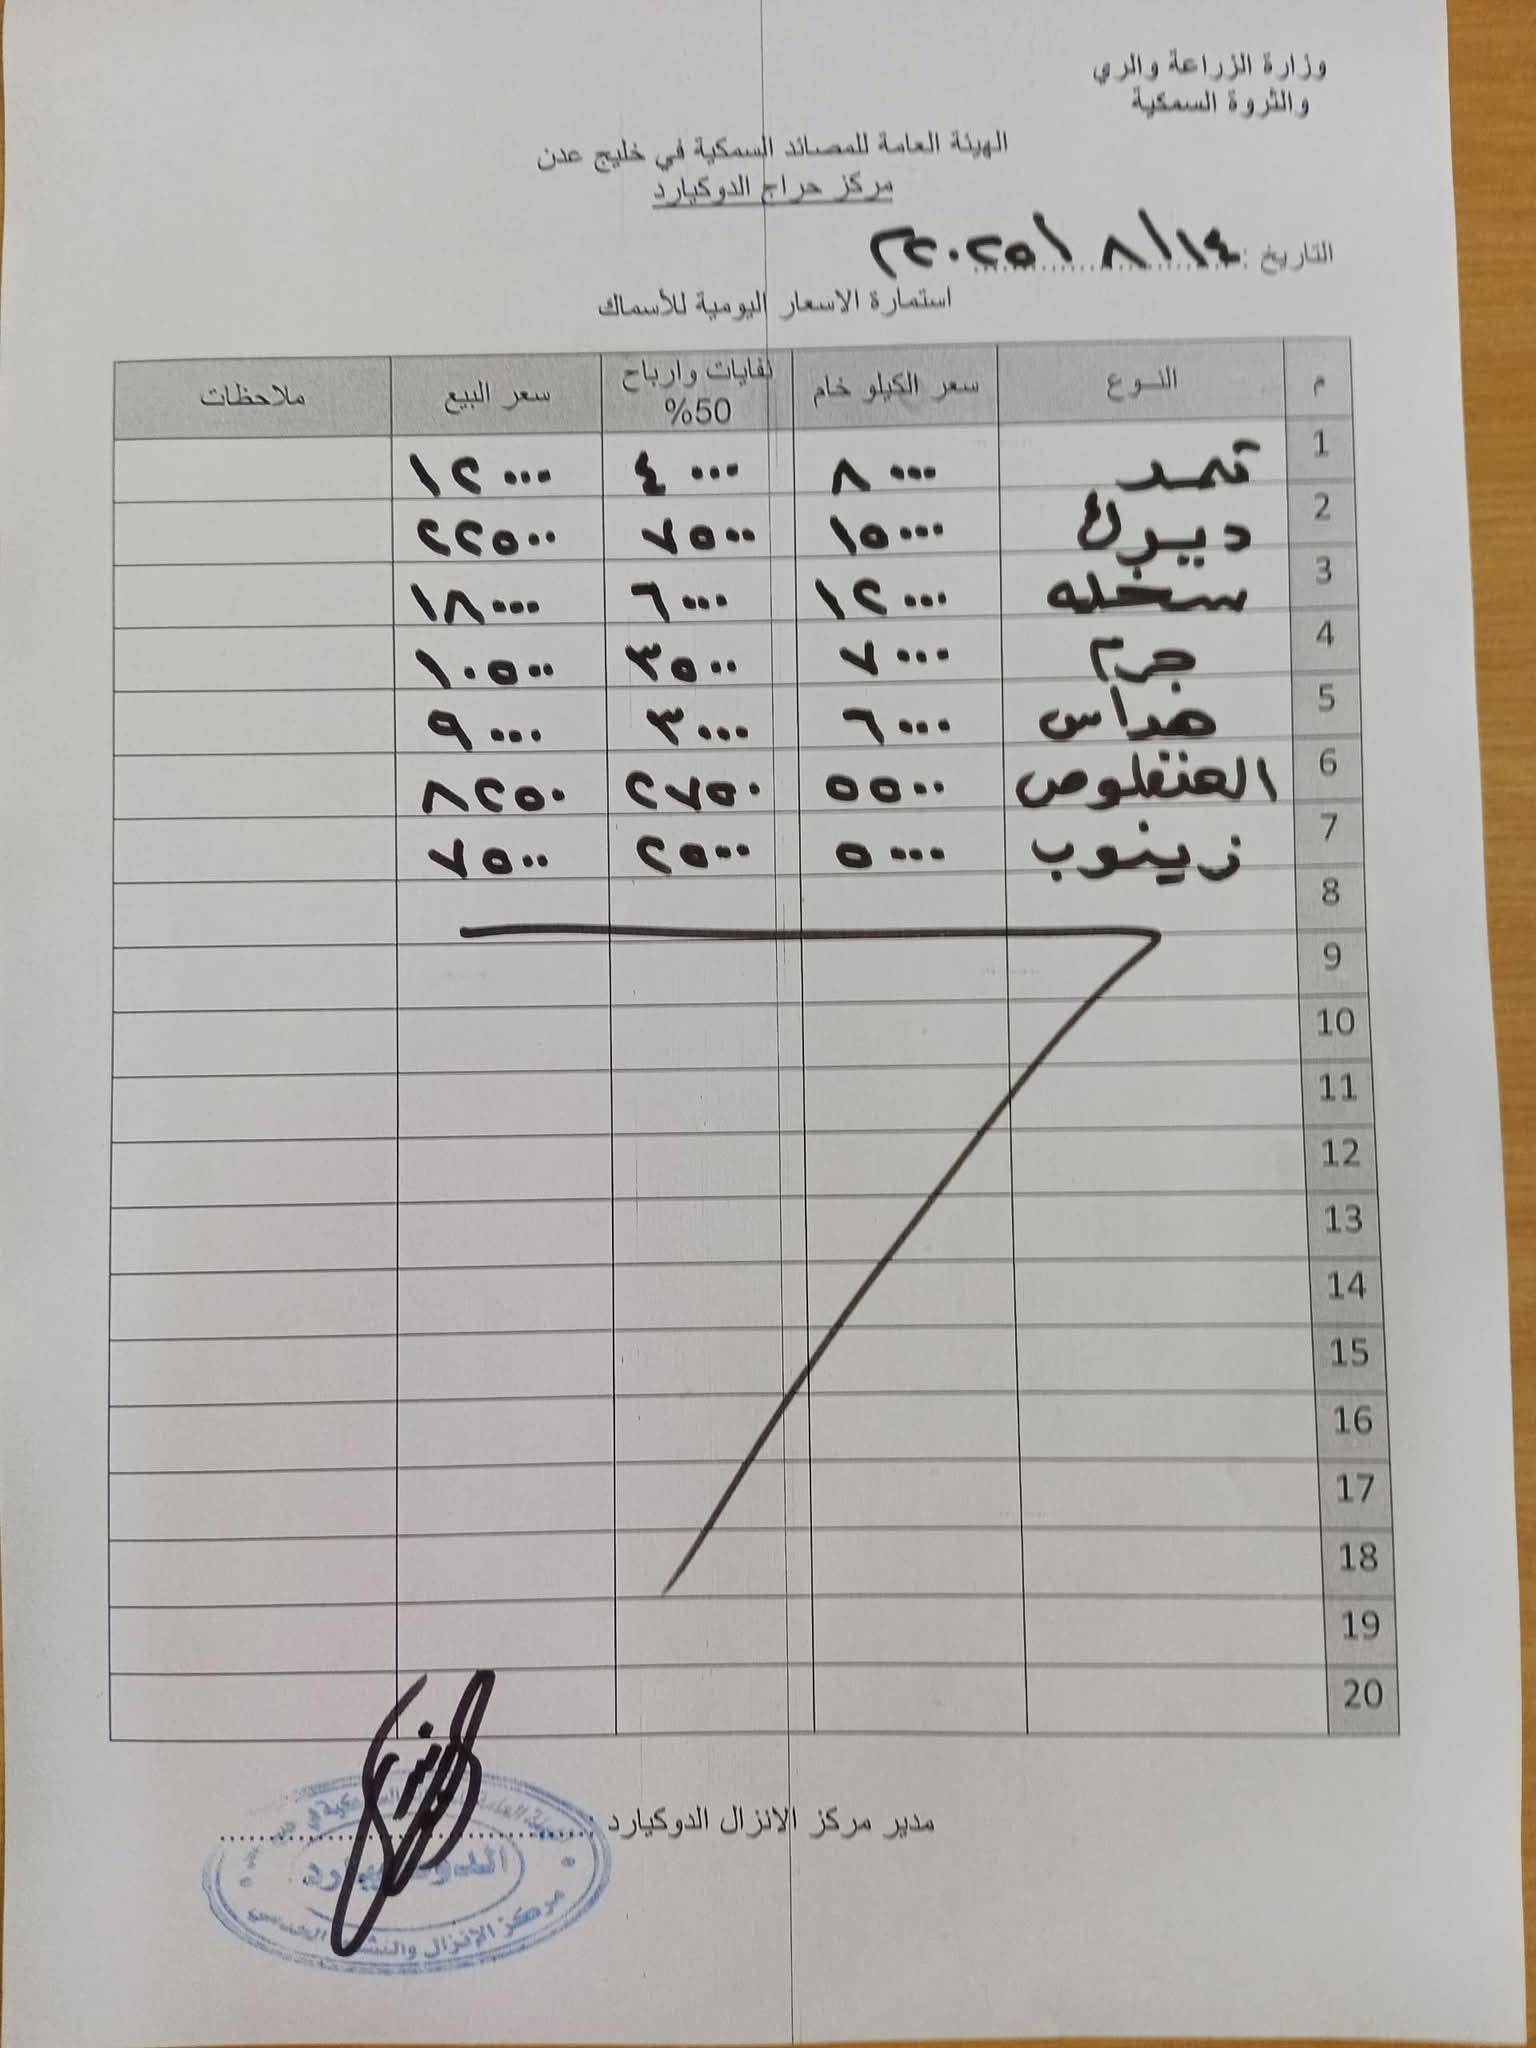 وزارة الزراعة والري
والثروة السمكية
الهيئة العامة للمصائد السمكية في خليج عدن
مركز حراج الدوكيارد
التاريخ : ١٤ / ٨ / ٢٠٢٥م
استمارة الاسعار اليومية للأسماك
م النوع سعر الكيلو خام نفايات وارباح 50% سعر البيع ملاحظات
1 ثمد ٨٠٠٠ ٤٠٠٠ ١٢٠٠٠
2 ديرك ١٥٠٠٠ ٧٥٠٠ ٢٢٥٠٠
3 سخله ١٢٠٠٠ ٦٠٠٠ ١٨٠٠٠
4 جرم ٧٠٠٠ ٣٥٠٠ ١٠٥٠٠
5 هداس ٦٠٠٠ ٣٠٠٠ ٩٠٠٠
6 ٥٥٠٠ ٢٧٥٠ ٨٢٥٠
7 زينوب ٥٠٠٠ ٢٥٠٠ ٧٥٠٠
8
9
10
11
12
13
14
15
16
17
18
19
20
مدير مركز الانزال الدوكيارد
الدوكيارد
مركز الإنزال